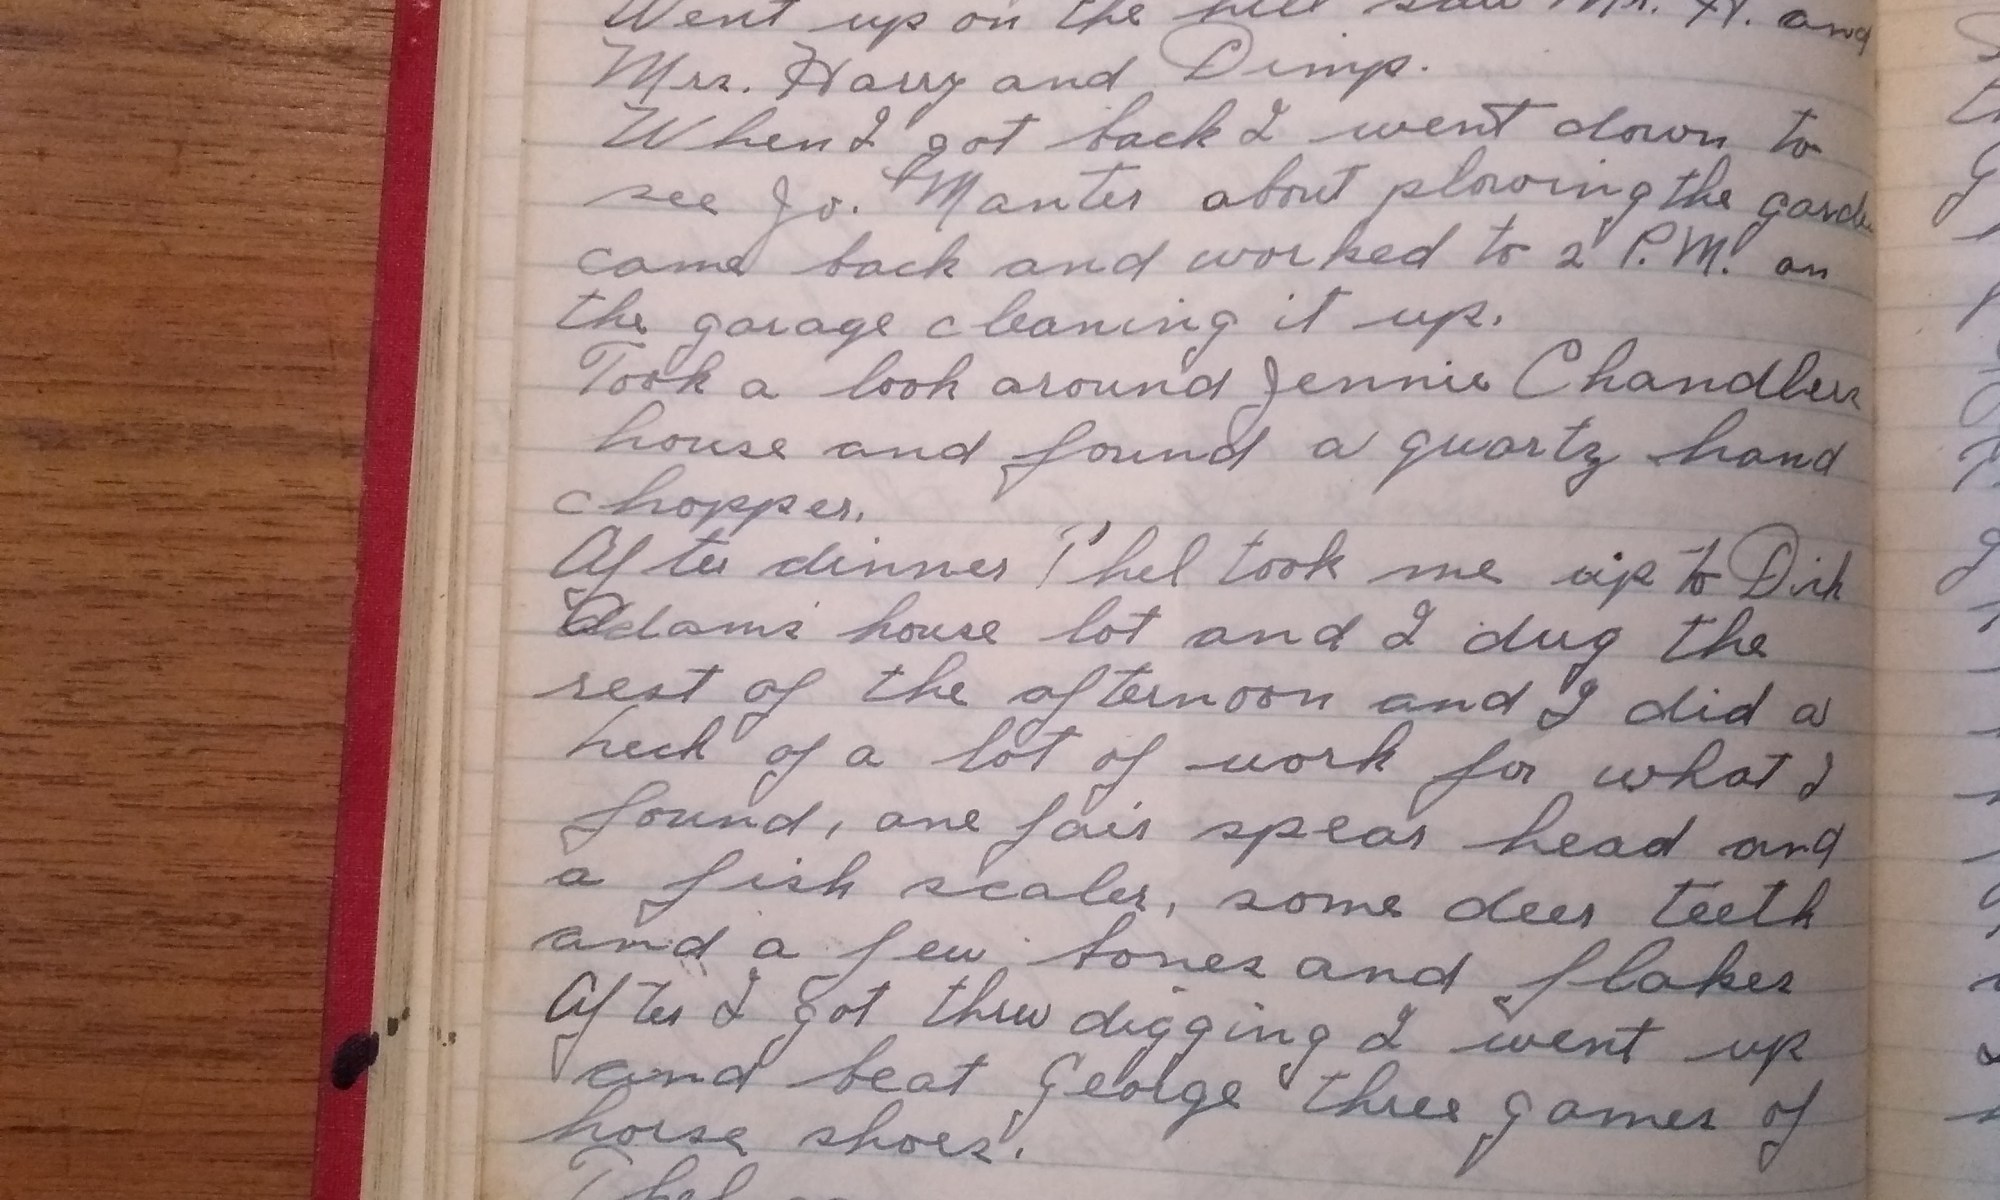 Went up on the hill saw Mr. H. and
Mrs. Harry and Dimp.
When I got back I went down to
see Jo. Manter about plowing the garden
came back and worked to 2 P.M. on
the garage cleaning it up.
Took a look around Jennie Chandlers
house and found a quartz hand
chopper.
After dinner Phel took me up to Dick
Adams house lot and I dug the
rest of the afternoon and I did a
heck of a lot of work for what I
found, one fair spear head and
a fish scaler, some deer teeth
and a few bones and flakes
After I got thru digging I went up
and beat George three games of
horse shoes.